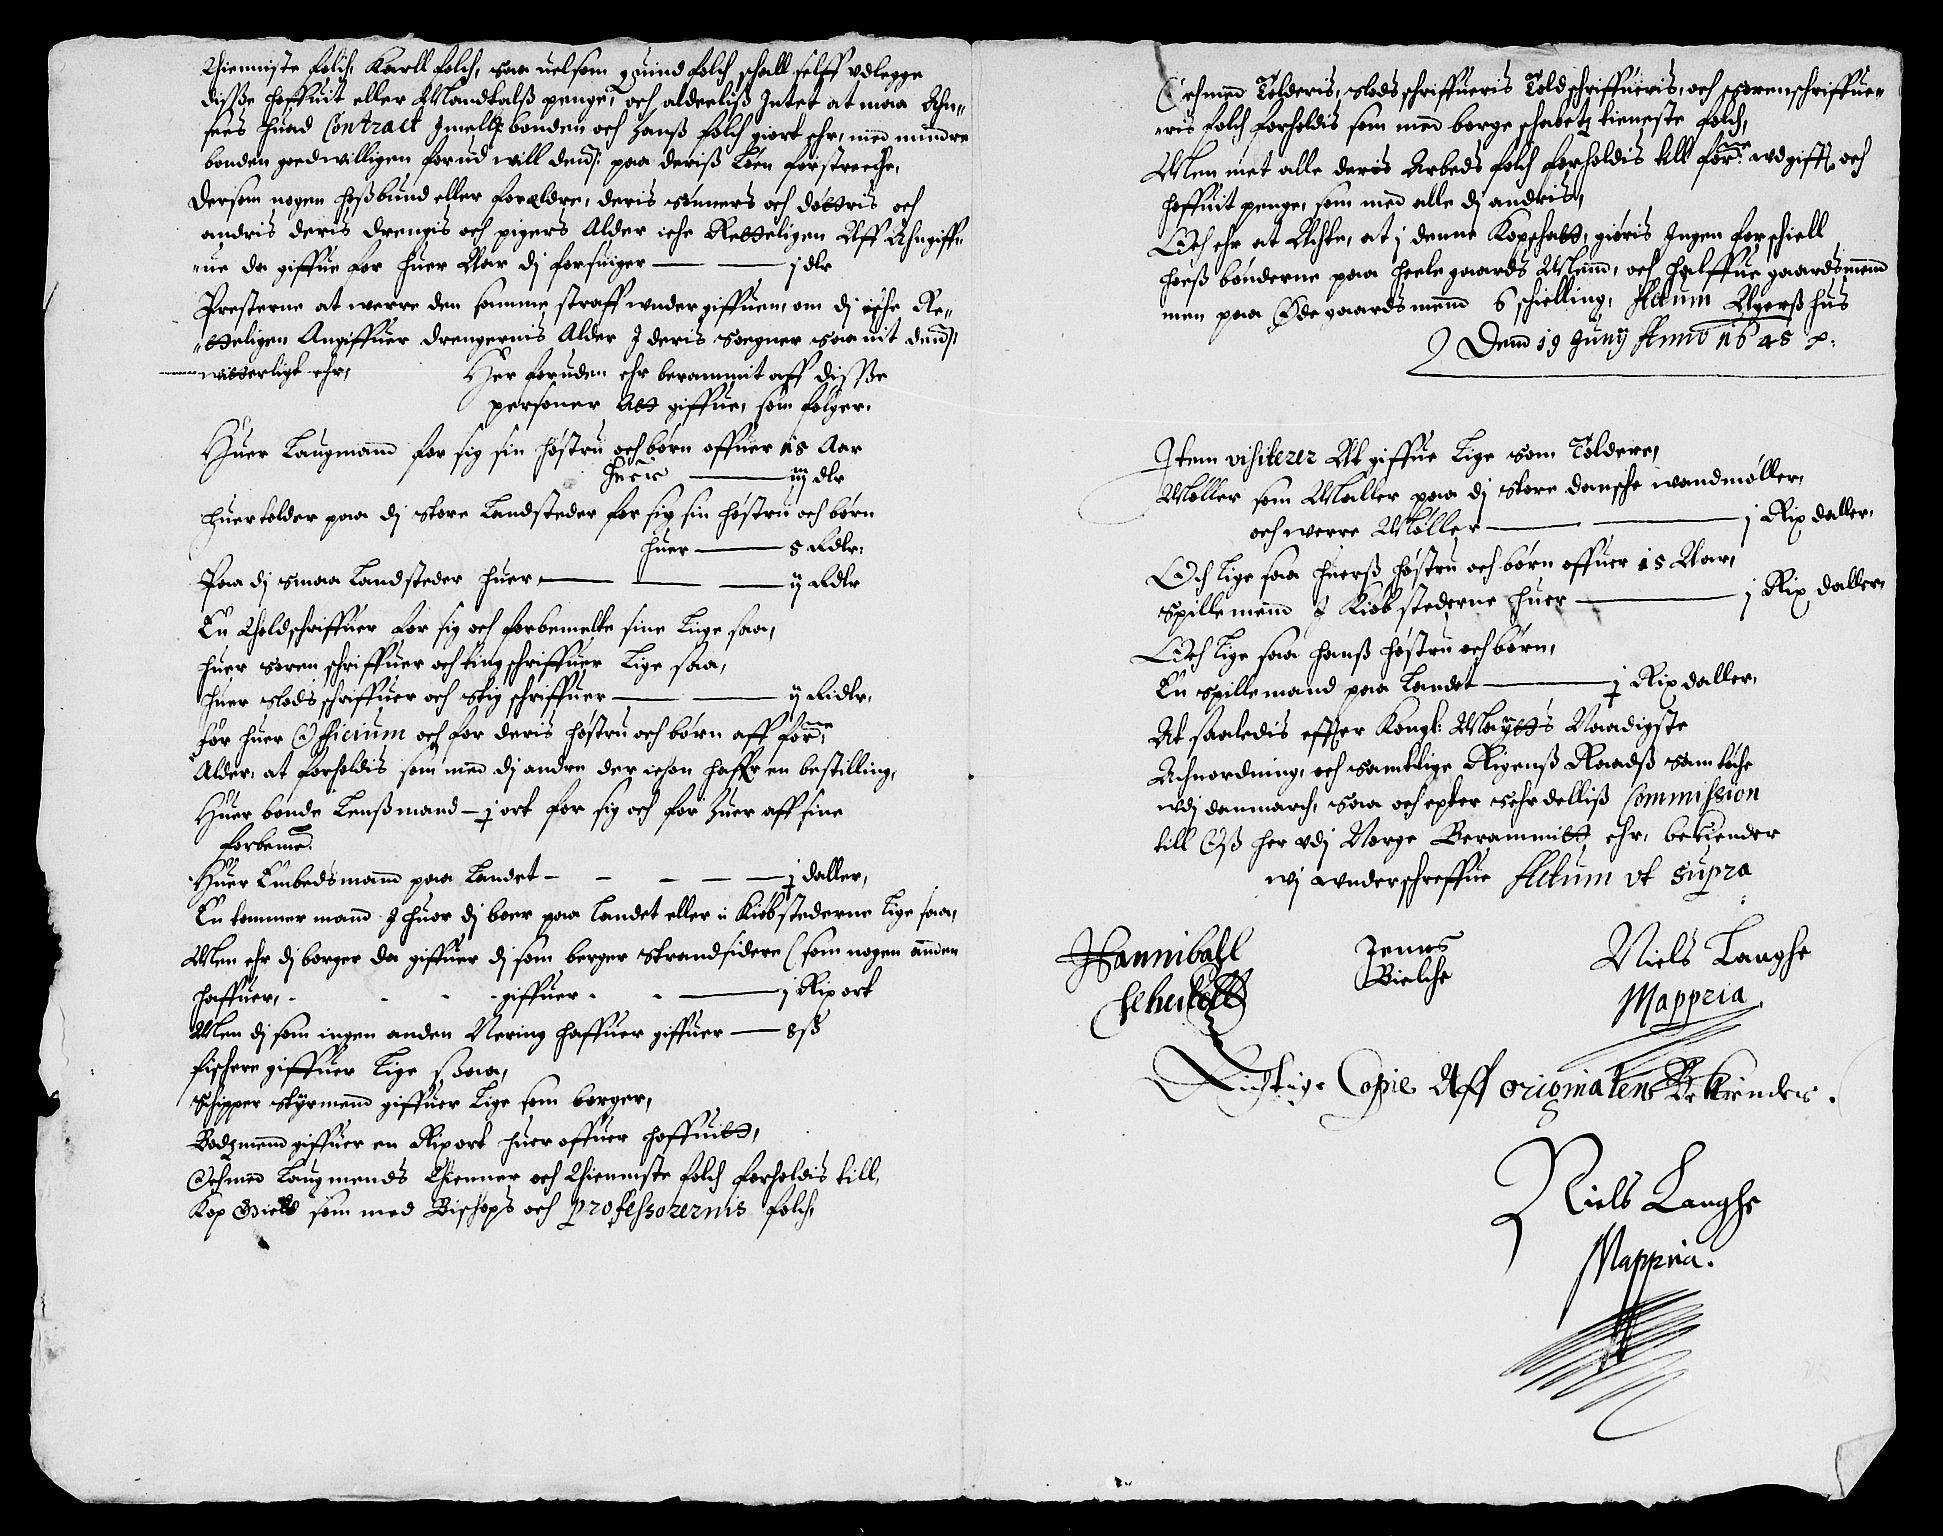 Thienniste folch, Karll folch, saa uelsom quind folch schall selff vdlegge
disße hoffuit eller Mandtalß penge, och alderliß Intet at maa Ahn-
sees huad Contract Imellom bonden och hanß folch giort ehr, med mindre
bonden goedwilligen forud will dend paa deriß Løen forstreche,
Dersom nogen hoßbund eller forældre, deris sönners och döttris och
andris deris drengis och pigers Alder iche Retteligen Aff Ahngiff-
-ue da giffue for huer Aar dj forsuiger — j dlr
Presterne at werre den samme straff wndergiffuen, om dj iche Re-
-tteligen Angiffuer drengernis Alder I deris Soegner saauit dend
witterligt ehr, Her foruden ehr berammit aff disße
personer Att giffue, som folger.
Huer Laugmand for sig sin høstru och børn offuer 15 Aar
huer — iij dlr
huer tolder paa dj store Landsteder for sig sin høstru och børn
huer — 5 Rdlr.
Paa dj smaa Landsteder huer — ij Rdlr
En Tholdschriffuer for sig och forbemelte sine Liige saa,
huer Sorenschriffuer och tingschriffuer Lige saa,
huer Slodsschriffuer och Stigschriffuer — ij Ridlr.
for huer Officium och for deris høstru och børn aff forne
Alder, at forholdis som med dj andre der ichon haffr en bestilling,
Huer bonde Lenßmand — j ort for sig och for huer aff sine
forbemte.
Huer Embedsmand paa Landet — j daller,
En tømmermand I huor dj boer paa Landet eller i Kiøbstederne lige saa,
Men ehr dj borger da giffuer dj som berger Strandsidere (som nogen anden
haffuer, giffuer — j Rix ort
Men dj som ingen anden Nering haffuer giffuer — 8 ß
fischere giffuer Lige saa,
Schipper Styrmend giffuer Lige som borger,
Bodzmend giffuer en Rix ort huer offuer hoffuitt,
Och med Laugmends Thienner och Thienniste folch forholdis till,
Kop som med Bischops och professorernis folch,
Och med Tolderis, Slodsschriffueris Toldschriffueris, och Sorenschriffue-
-ris folch forholdis som med borge schabetz tieneste folch,
Men met alle deris Arbeds folch forholdis till forne wdgifft och
hoffuit penge, som med alle dj andris,
Och ehr at Achte, at j denne Kopschatt, giöris Ingen forschiell
hoeß bönderne paa heele gaards Mend, och halffue gaardsmend
men paa Ødegaardsmend 6 schielling, Actum Agerßhus
Dend 19 Juny Anno 1645
Item visiterer At giffue Lige som Toldere,
Møller som Maller paa dj store dansche wandmøller,
och werre Møller — j Rix daller,
Och lige saa huerß høstru och børn offuer 15 Aar,
Spillemend I Kiøbstederne huer — j Rix daller,
Och lige saa hanß høstru och børn,
En Spillemand paa Landet — j Rixdaller,
At saaledis effter Kongl: Maytts Naadigste
Anordning, och samtlige Rigenß Raadß samtöche
wdj danmarch, saa och epter serdelliß Commission
till Oß her vdj Norge Berammitt ehr, bekiender
wj wnderschreffne Actum vt supra
Hannibahl
Sehested
Jenns
Bielche
Niels Langhe
Mappria
Richtige Copie Aff originalen Bekiender.
Niels Langhe
Mappria.